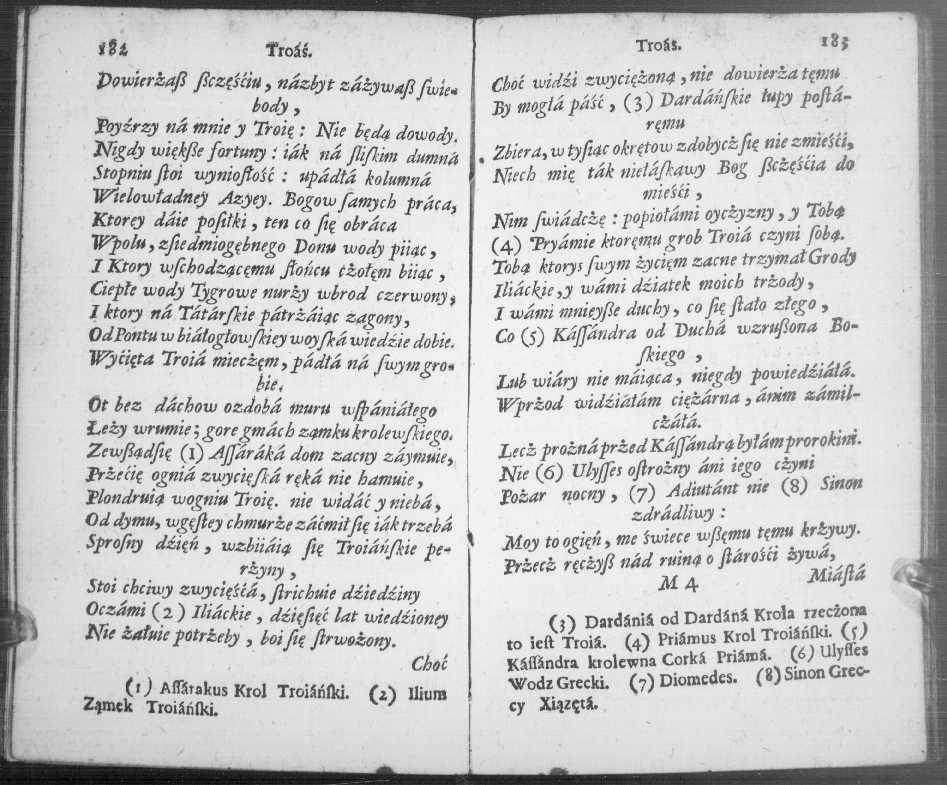 182 Troáś.
Dowierżaß ßczęśćiu, názbyt záżywaß ſwie-
body,
Poyźrzy ná mnie y Troię: Nie będą dowody.
Nigdy więkße fortuny: iák ná śliſkim dumná
Stopniu ſtoi wynioſłość: upádłá kolumná
Wielowładney Azyey. Bogow ſamych práca,
Ktorey dáie poſiłki, ten co ſię obráca
Wpolu, zſiedmiogębnego Donu wody piiąc,
I Ktory wſchodzącęmu ſłońcu cżołęm biiąc,
Ciepłe wody Tygrowe nurży wbrod czerwony,
I ktory ná Tátárſkie pátrżáiąc zagony,
Od Pontu w biáłogłowſkiey woyſká wiedźie dobie.
Wyćięta Troiá mieczęm, pádłá ná ſwym gro-
bie.
Ot bez dáchow ozdobá muru wſpániáłego
Leży wrumie; gore gmách zamku krolewſkiego.
Zewßądſię (1) Aſſáráká dom zacny záymuie,
Pržećię ogniá zwycięſká ręká nie hamuie,
Plondruią wogniu Troię. nie widáć y niebá,
Od dymu, wgęſtey chmurże záćmił ſię iák trzebá
Sproſny dźięń, wzbiiáią ſię Troiáńſkie pe-
rżyny,
Stoi chciwy zwycięśćá, ſtrichuie dźiedźiny
Oczámi (2) Iliáckie, dźięſięć lat wiedźioney
Nie żałuie potrżeby, boi ſię ſtrwożony.
Choć
(1) Aſſárakus Krol Troiáńſki. (2) Ilium
Ząmek Troiáńſki.
Troás. 183
Choć widźi zwyciężoną, nie dowierża tęmu
By mogłá páść, (3) Dardáńſkie łupy poſtá-
ręmu
Zbiera, w tyſiąc okrętow zdobycż ſię nie zmieśći,
Niech mię ták niełáſkawy Bog ßczęśćia do
mieśći,
Nim ſwiádczę: popiołámi oyczyzny, y Tobą
(4) Pryámie ktoręmu grob Troiá czyni ſobą.
Tobą ktorys ſwym życięm zacne trzymał Grody
Iliáckie, y wámi dźiatek moich trżody,
I wámi mnieyße duchy, co ſię ſtáło złego,
Co (5) Káſſándra od Duchá wzrußona Bo-
ſkiego,
Lub wiáry nie máiąca, niegdy powiedźiáłá.
Wprżod widźiáłám ciężárna, ánim zámil-
cżáłá.
Lecż prożná przed Káſſándrą byłám prorokiní.
Nie (6) Ulyſſes oſtrożny áni iego cżyni
Pożar nocny, (7) Adiutánt nie (8) Sinon
zdrádliwy:
Moy to ogięń, me świece wßęmu tęmu krżywy.
Pržecż ręczyß nád ruiną o ſtárośći żywá,
M 4 Miáſtá
(3) Dardániá od Dardáná Krola rzecżona
to ieſt Troiá. (4) Priámus Krol Troiáńſki. (5)
Káſſándra krolewna Corká Priámá. (6) Ulyſſes
Wodz Grecki. (7) Diomedes. (8) Sinon Grec-
cy Xiązętá.